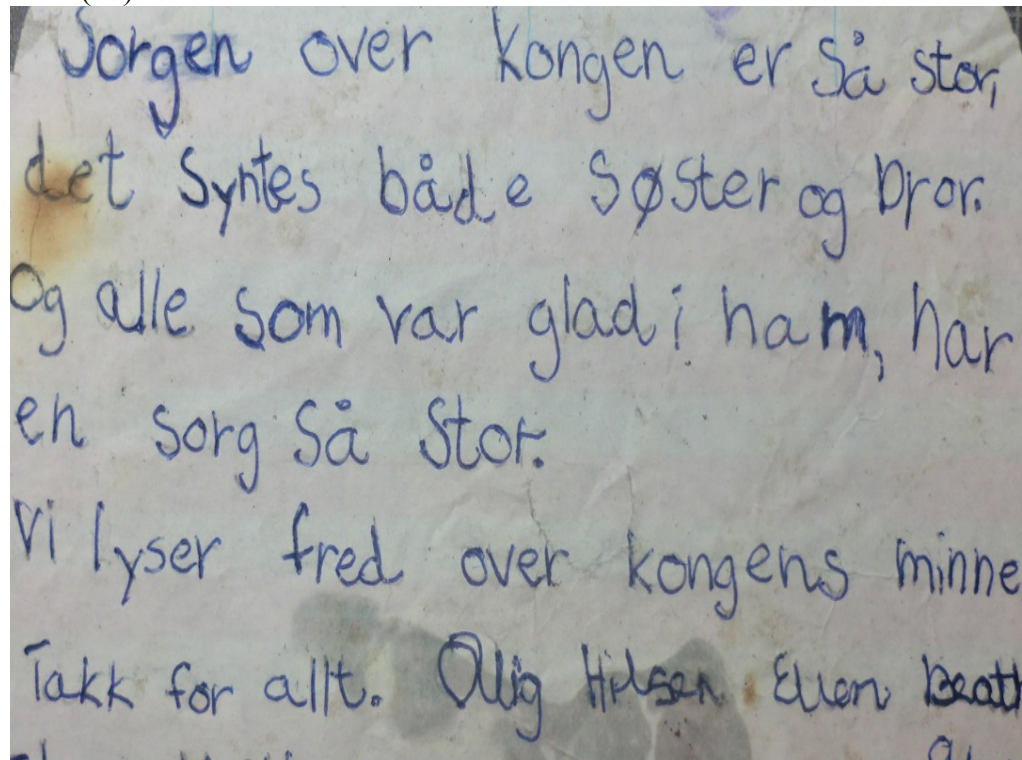 Sorgen over Kongen er så stor,
det syntes både søster og bror.
Og alle som var glad i ham, har
en sorg så stor.
Vi lyser fred over kongens minne
Takk for allt. Hilsen Ellen Beath